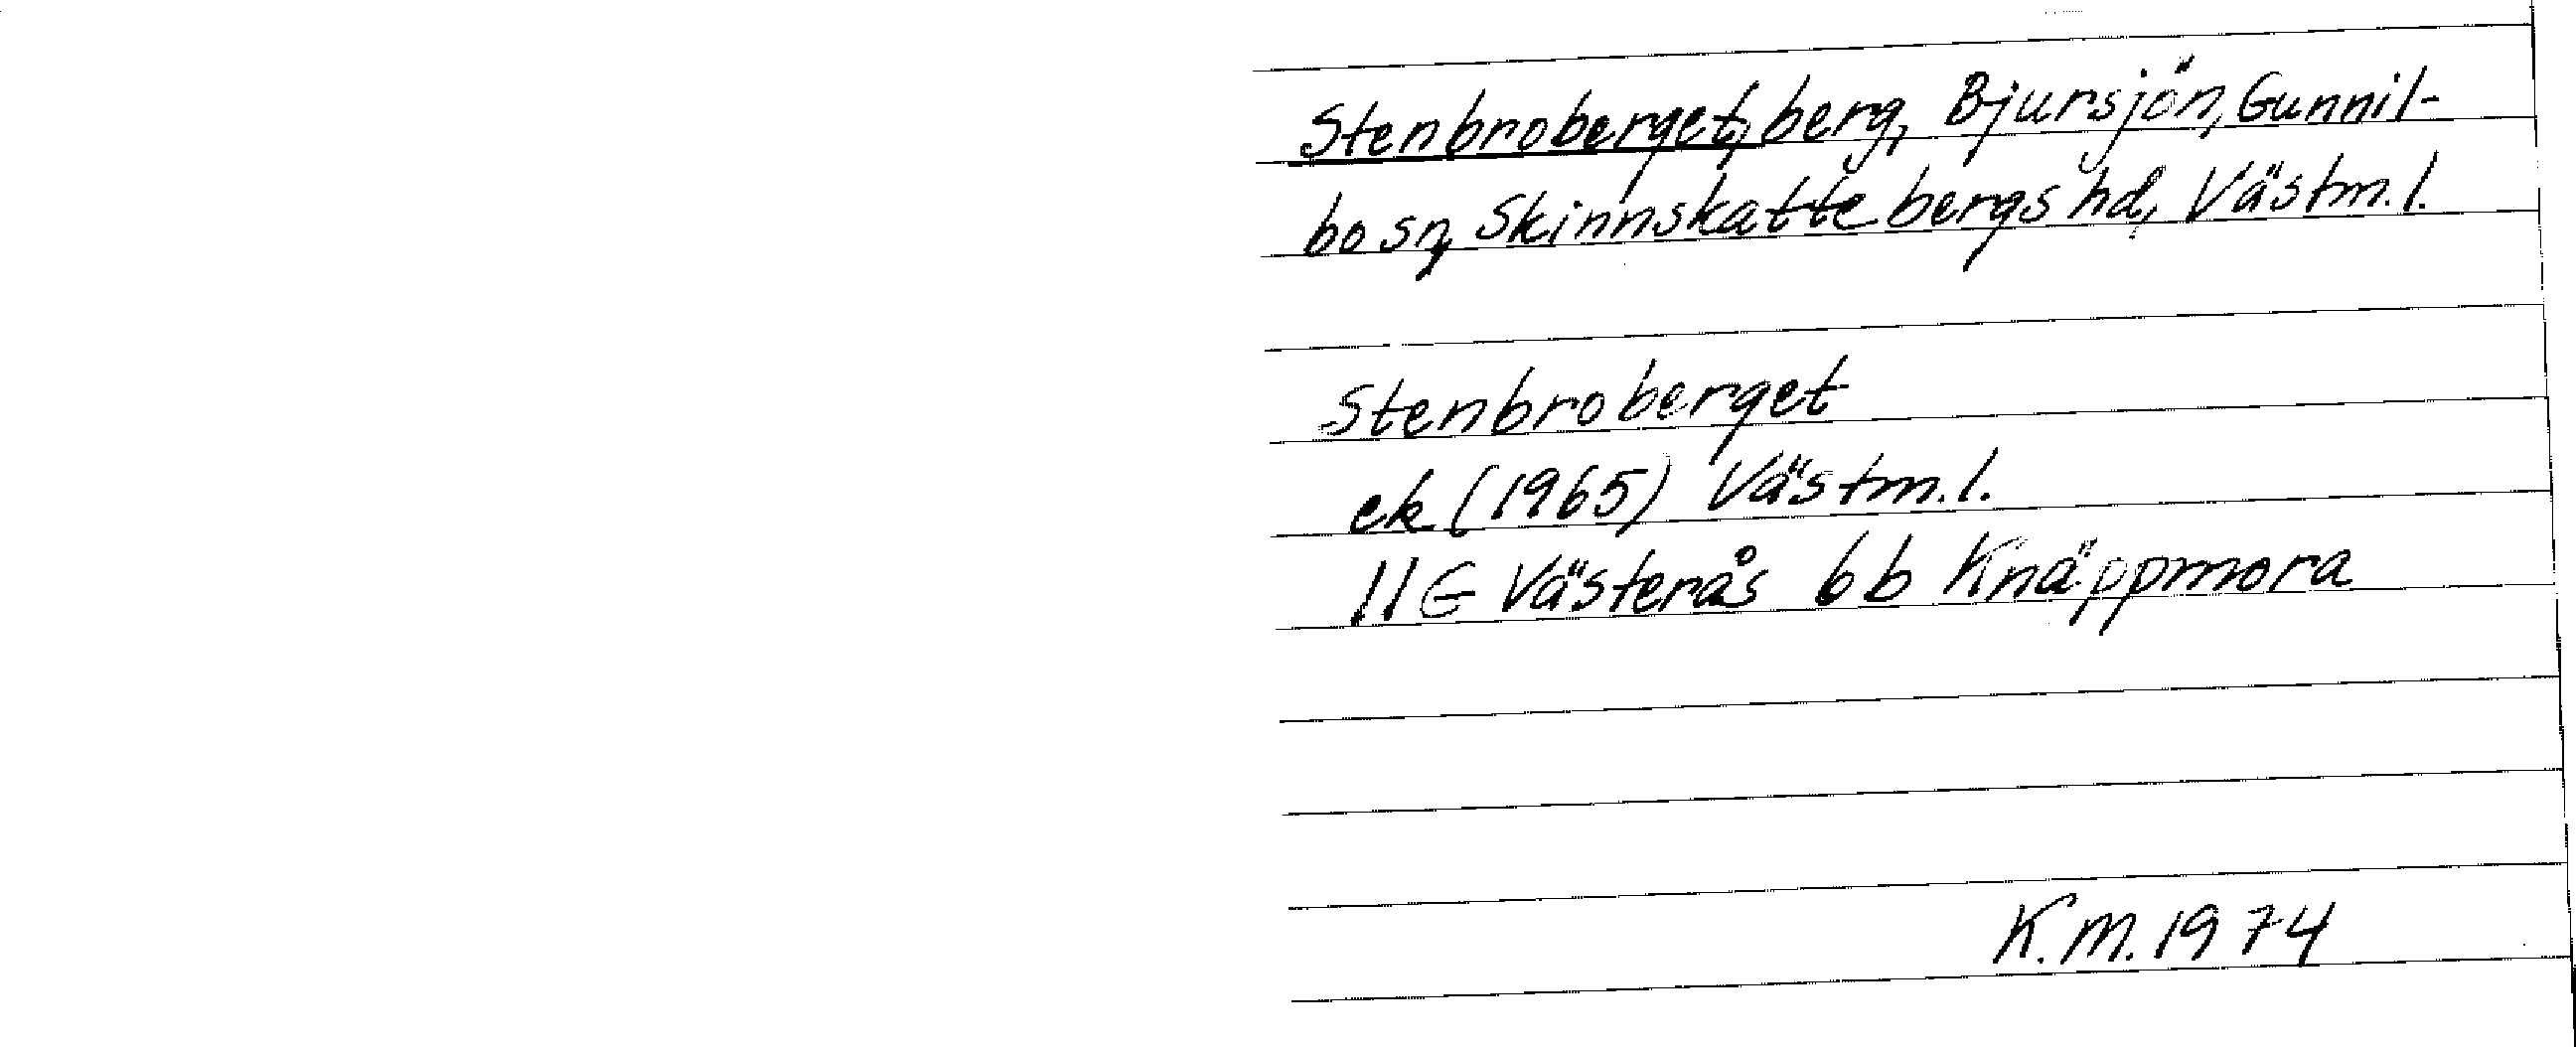 Stenbroberget, berg, Bjursjön, Gunnil-
bo sn, Skinnskattebergs hd, Västm.l.
Stenbroberget
ek (1965) Västm.l.
11G Västerås 6b Knäppmora
K.M. 1974